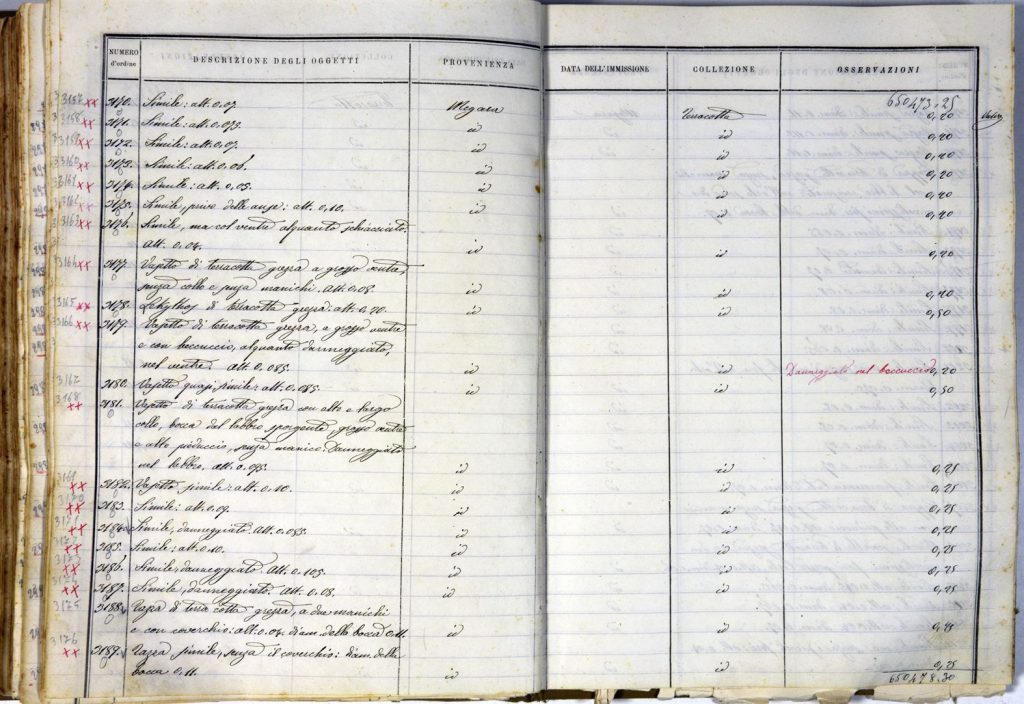 NUMERO d'ordine DESCRIZIONE DEGLI OGGETTI PROVENIENZA DATA DELL'IMMISSIONE COLLEZIONE OSSERVAZIONI
650473.25
3157 xx 3170. Simile: alt. 0.07. Megara Terracotta 0,20
3158 xx 3171. Simile: alt. 0.073. id id 0,20
3159 xx 3172. Simile: alt. 0.07. id id 0,20
3160 xx 3173. Simile: alt. 0.06. id id 0,20
3161 xx 3174. Simile: alt. 0.05. id id 0,20
3162 xx 3175. Simile, privo delle anse: alt. 0.10. id id 0,20
3163 xx 3176. Simile, ma col ventre alquanto schiacciato.
alt. 0.07. id id 0,20
3164 xx 3177. Vasetto di terracotta grezza a grosso ventre,
senza collo e senza manichi. Alt. 0.08. id id 0,20
3165 xx 3178. Lekythos di terracotta grezza: alt. 0.20. id id 0,50
3166 xx 3179. Vasetto di terracotta grezza, a grosso ventre
e con boccuccio, alquanto danneggiato,
nel ventre. Alt. 0.085. id id Danneggiato nel boccuccio 0,20
3167 3180. Vasetto quasi simile: alt. 0.085. id id 0,50
3168 xx 3181. Vasetto di terracotta grezza con alto e largo
collo, bocca dal labbro sporgente, grosso ventre
e alto pieduccio, senza manico. Danneggiato
nel labbro. alt. 0.095. id id 0,25
3169 xx 3182. Vasetto simile: alt. 0.10. id id 0,25
3170 xx 3183. Simile: alt. 0.09. id id 0,25
3171 xx 3184. Simile, danneggiato. Alt. 0.085. id id 0,25
3172 xx 3185. Simile: alt. 0.10. id id 0,25
3173 xx 3186. Simile, danneggiato. Alt. 0.105. id id 0,25
3174 xx 3187. Simile, danneggiato. Alt. 0.08. id id 0,25
3175 3188. Tazza di terra cotta grezza, a due manichi
e con coverchio: alt. 0.07. diam. della bocca 0.11. id id
3176 xx 3189. Tazza simile, senza il coverchio: diam. della
bocca 0.11. id id 0,25
650478.30